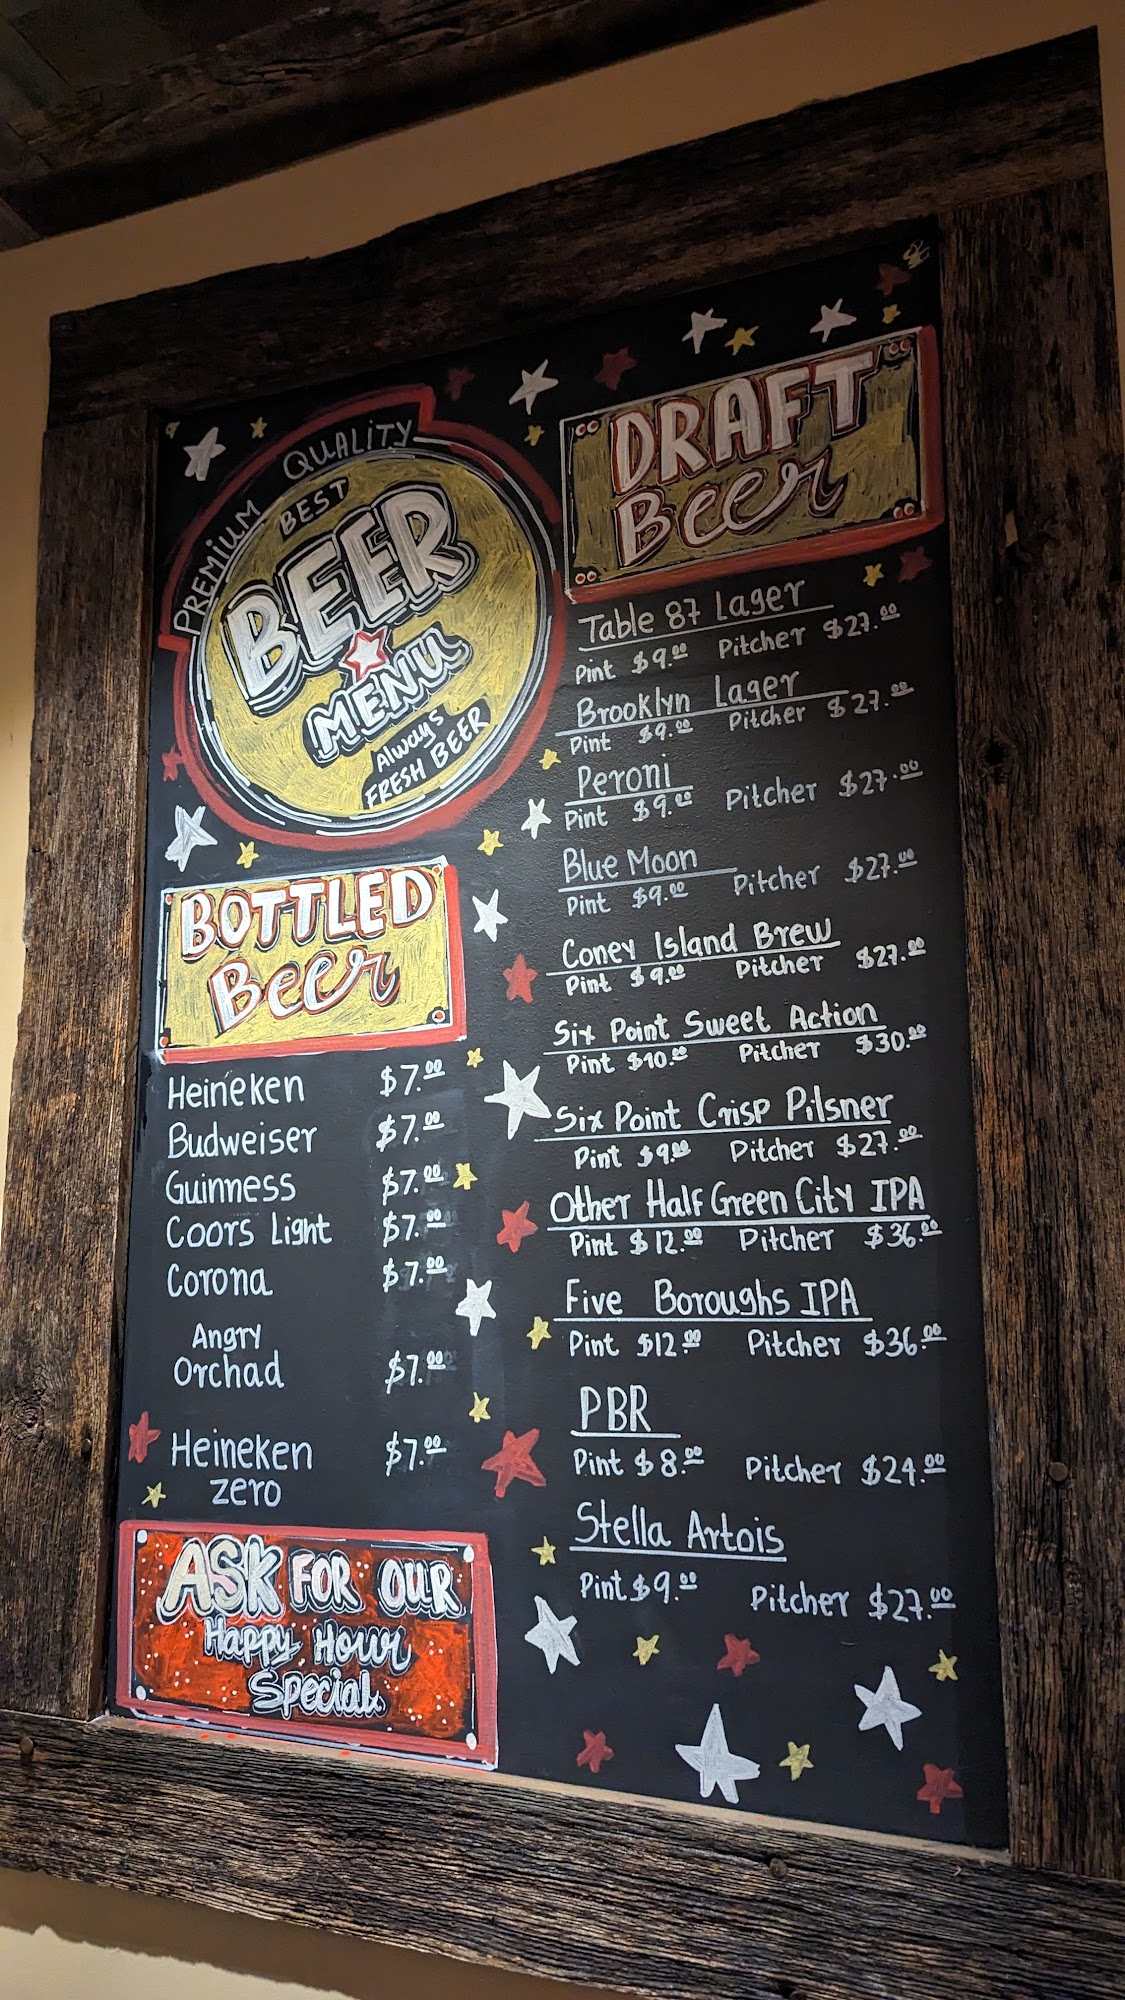 PREMIUM QUALITY
BEST
BEER
MENU
Always
FRESH BEER
BOTTLED
Beer
Heineken $7.00
Budweiser $7.00
Guinness $7.00
Coors Light $7.00
Corona $7.00
Angry
Orchad $7.00
Heineken $7.00
zero
ASK FOR OUR
Happy Hour
Special
DRAFT
Beer
Table 87 Lager
Pint $9.00 Pitcher $27.00
Brooklyn Lager
Pint $9.00 Pitcher $27.00
Peroni
Pint $9.00 Pitcher $27.00
Blue Moon
Pint $9.00 Pitcher $27.00
Coney Island Brew
Pint $9.00 Pitcher $27.00
Six Point Sweet Action
Pint $10.00 Pitcher $30.00
Six Point Crisp Pilsner
Pint $9.00 Pitcher $27.00
Other Half Green City IPA
Pint $12.00 Pitcher $36.00
Five Boroughs IPA
Pint $12.00 Pitcher $36.00
PBR
Pint $8.00 Pitcher $24.00
Stella Artois
Pint $9.00 Pitcher $27.00